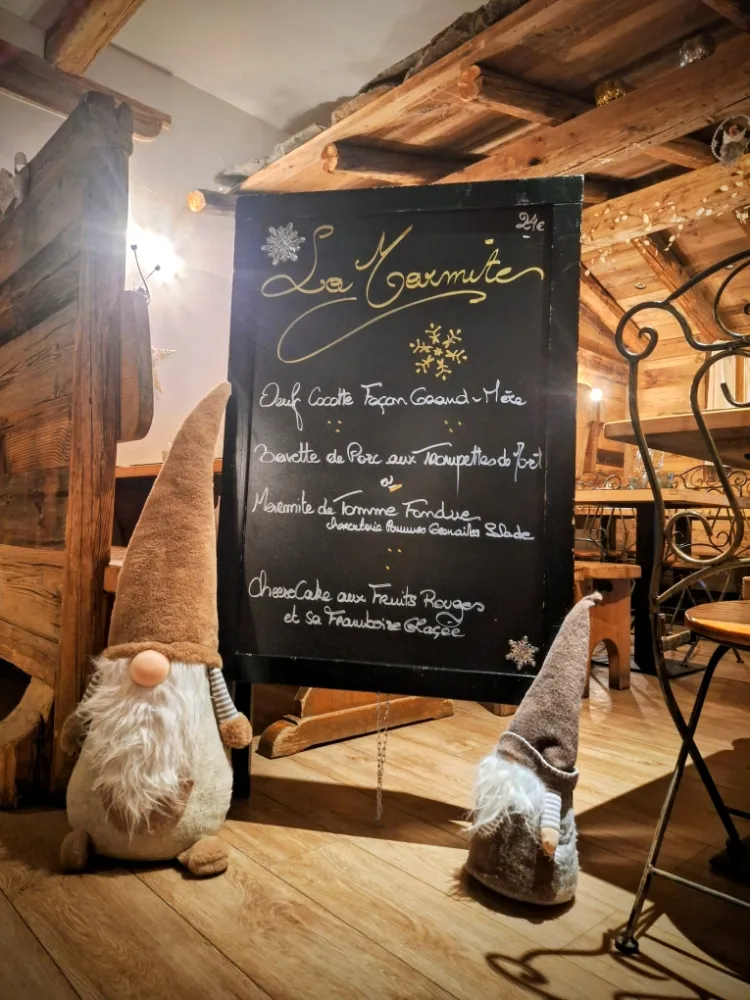 24€
La Marmite
Oeuf Cocotte Façon Grand-Mère
Bavette de Porc aux Trompettes de
ou
Marmite de Tomme Fondue
charcuterie Pommes Grenailles Salade
CheeseCake aux Fruits Rouges
et sa Framboise Glaçée